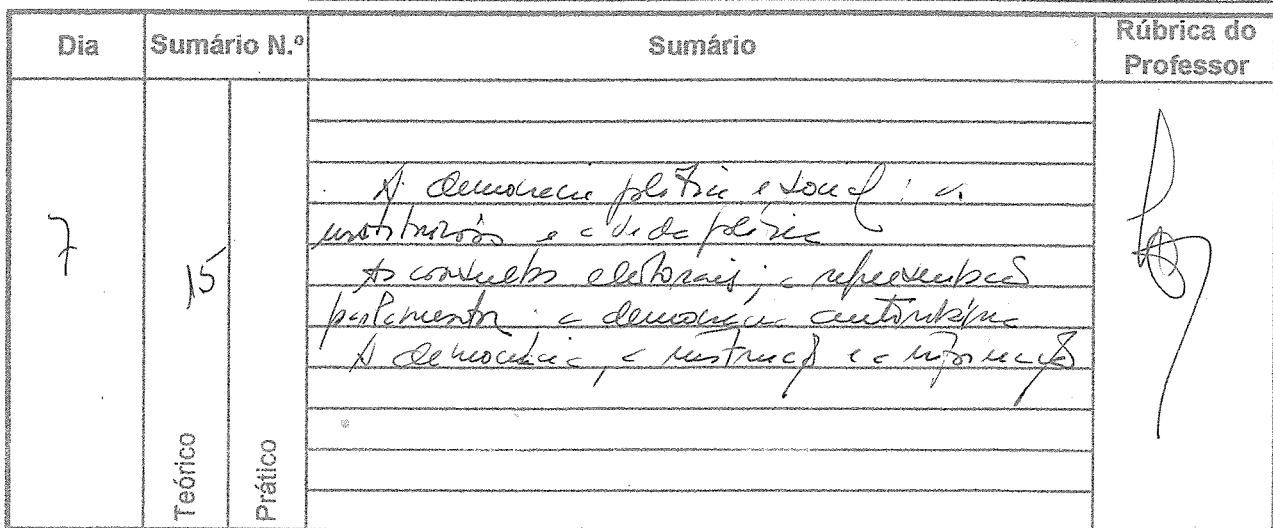 Dia
Sumário N.º
Sumário
Rúbrica do
Professor
7
15
A democracia política e social: as
instituições e a vida política
As consultas eleitorais; a representação
parlamentar; a democracia autoritária
A democracia, a instrução e a informação
Teórico
Prático